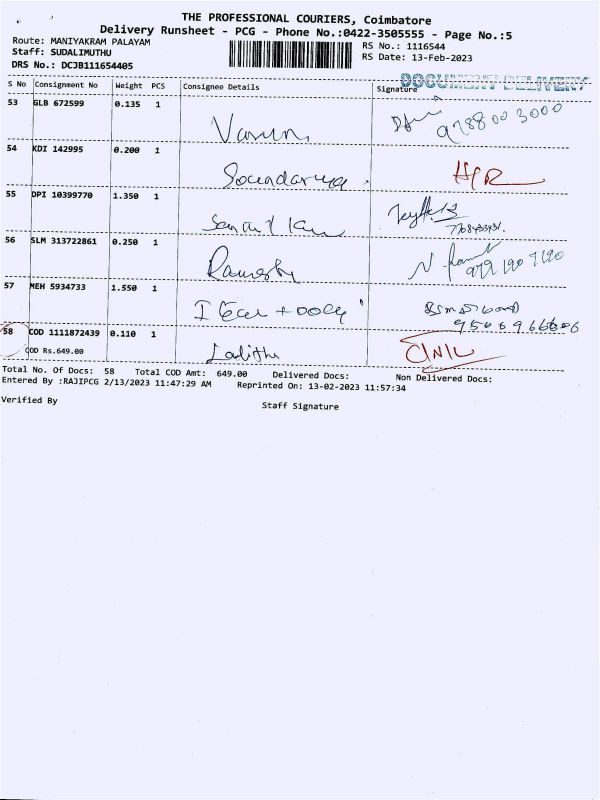 THE PROFESSIONAL COURIERS, Coimbatore
Delivery Runsheet - PCG - Phone No.:0422-3505555 - Page No.:5
Route: MANIYAKRAM PALAYAM
RS No.: 1116544
Staff: SUDALIMUTHU
RS Date: 13-Feb-2023
DRS No.: DCJB111654405
DOCUMENT DELIVERY
S No Consignment No Weight PCS Consignee Details Signature
53 GLB 672599 0.135 1
Varun 978800 3000
54 KDI 142995 0.200 1
Soundarya
55 DPI 10399770 1.350 1
56 SLM 313722861 0.250 1
Ramesh
57 MEH 5934733 1.550 1
9500966606
58 COD 1111872439 0.110 1
COD Rs.649.00 Lalitha
Total No. Of Docs: 58 Total COD Amt: 649.00 Delivered Docs: Non Delivered Docs:
Entered By :RAJIPCG 2/13/2023 11:47:29 AM Reprinted On: 13-02-2023 11:57:34
Verified By
Staff Signature